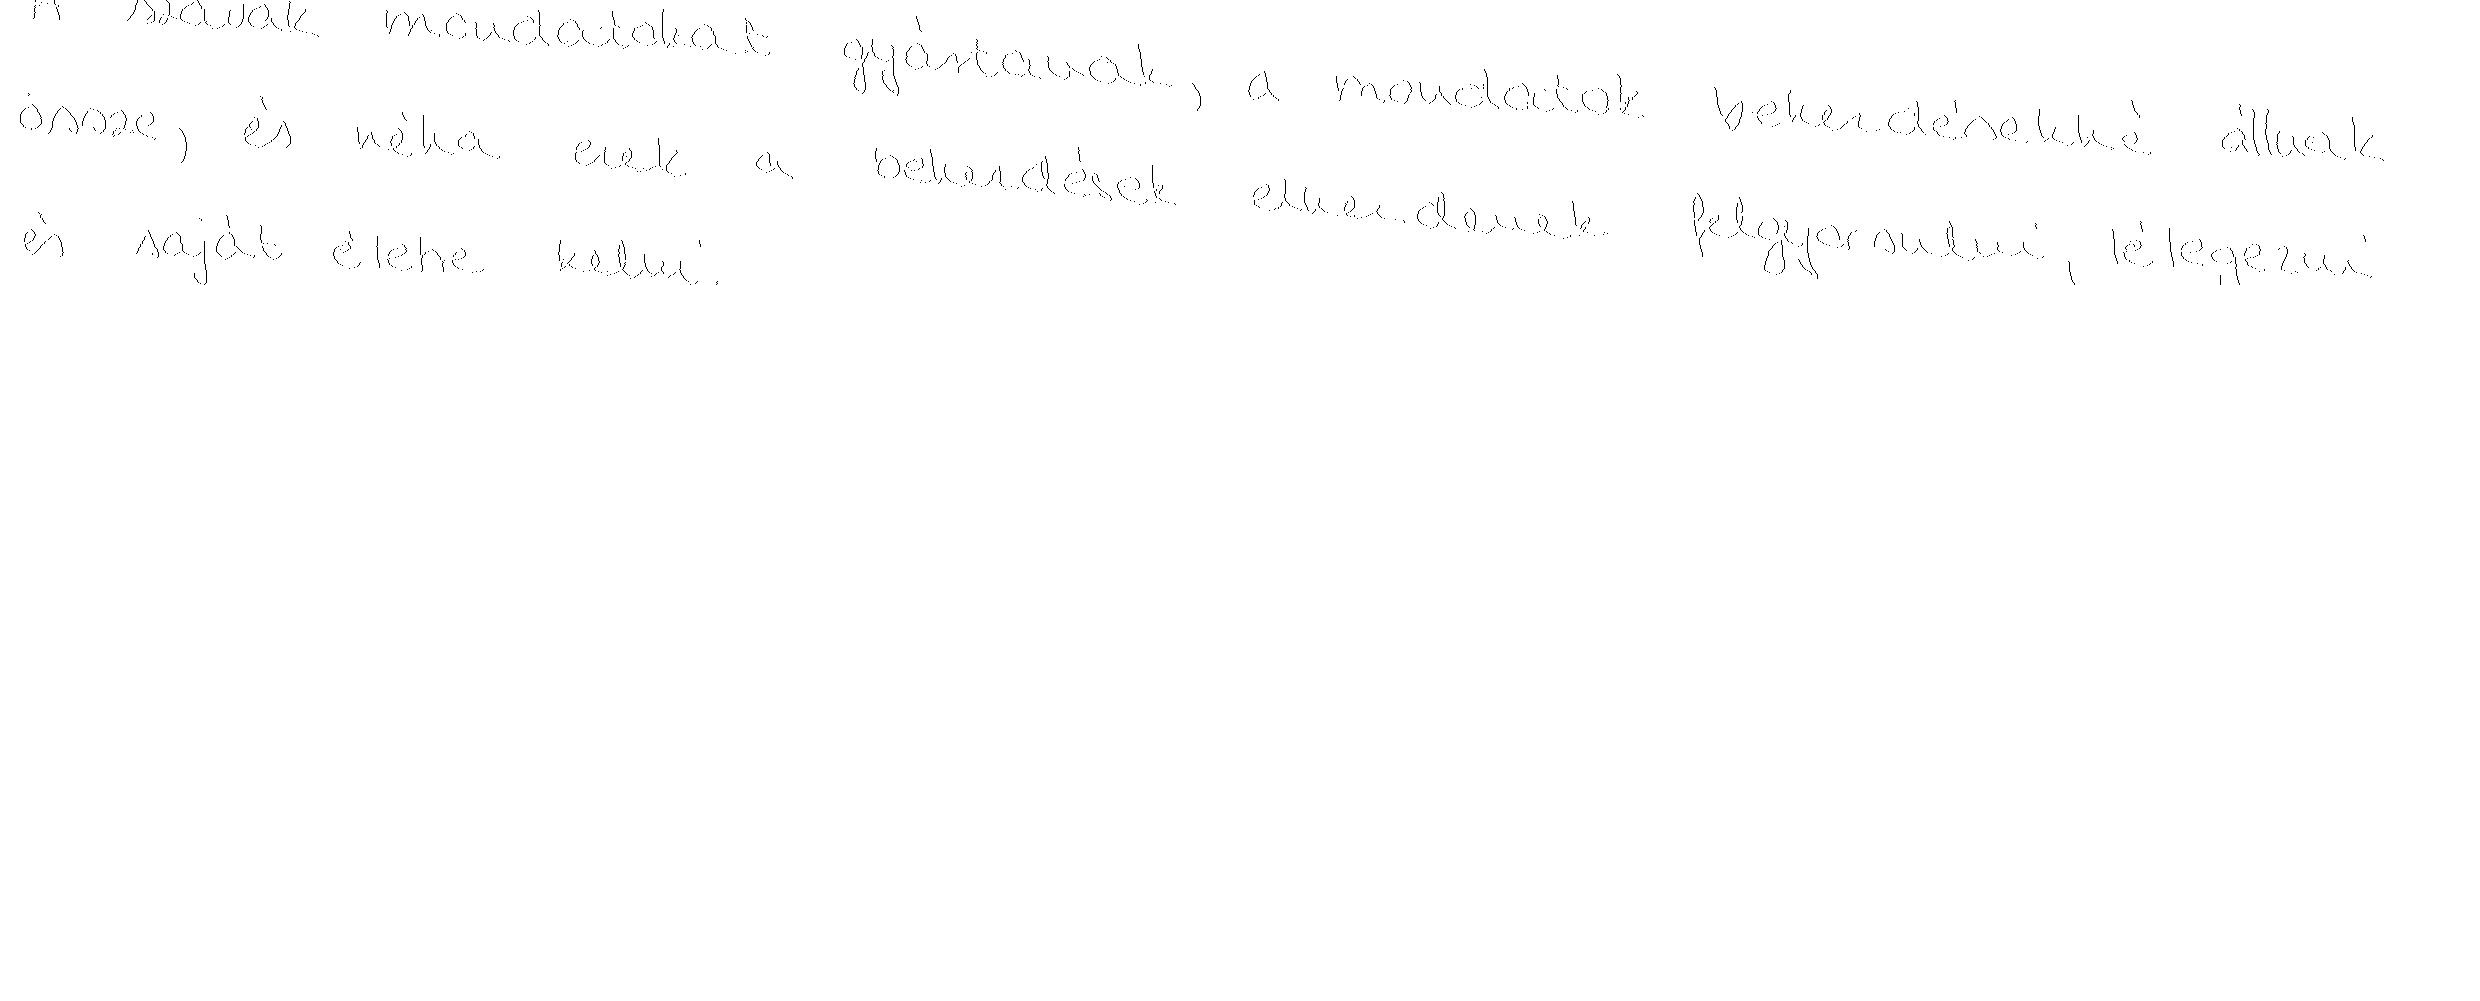 A szavak mondatokat gyártanak, a mondatok bekezdésekké állnak
össze, és néha ezek a bekezdések elkezdenek felgyorsulni, lélegezni
és saját életre kelni.